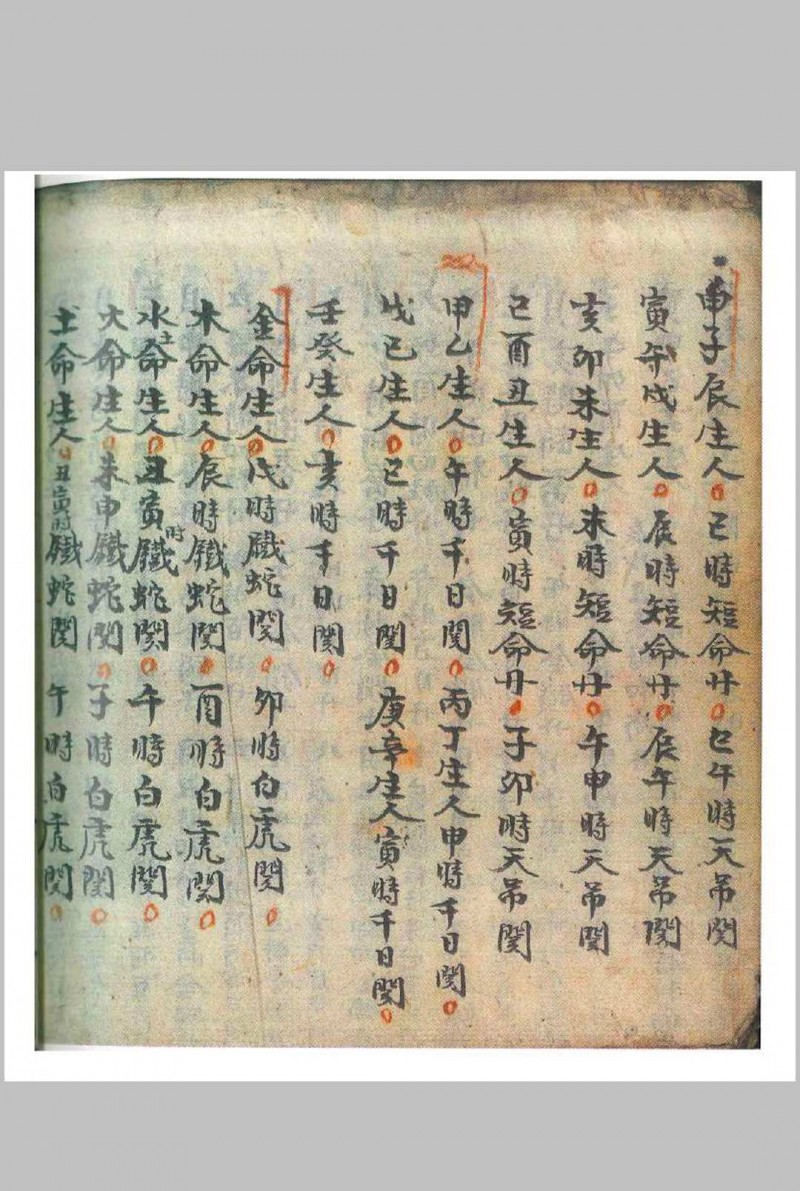 申子辰生人○巳時短命廾○巳午時天吊関
寅午戌生人○辰時短命廾○辰午時天吊関
亥卯未生人○未時短命廾○午申時天吊関
巳酉丑生人○寅時短命廾○子卯時天吊関
甲乙生人○午時千日関○丙丁生人申時千日関○
戊己生人○巳時千日関○庚辛生人寅時千日関○
壬癸生人○亥時千日関○
金命生人○戌時鐵蛇関○卯時白虎関○
木命生人○辰時鐵蛇関○酉時白虎関○
水土命生人○丑寅時鐵蛇関○午時白虎関○
火命生人○未申鐵蛇関○子時白虎関○
土命生人○丑寅時鐵蛇関 午時白虎関○